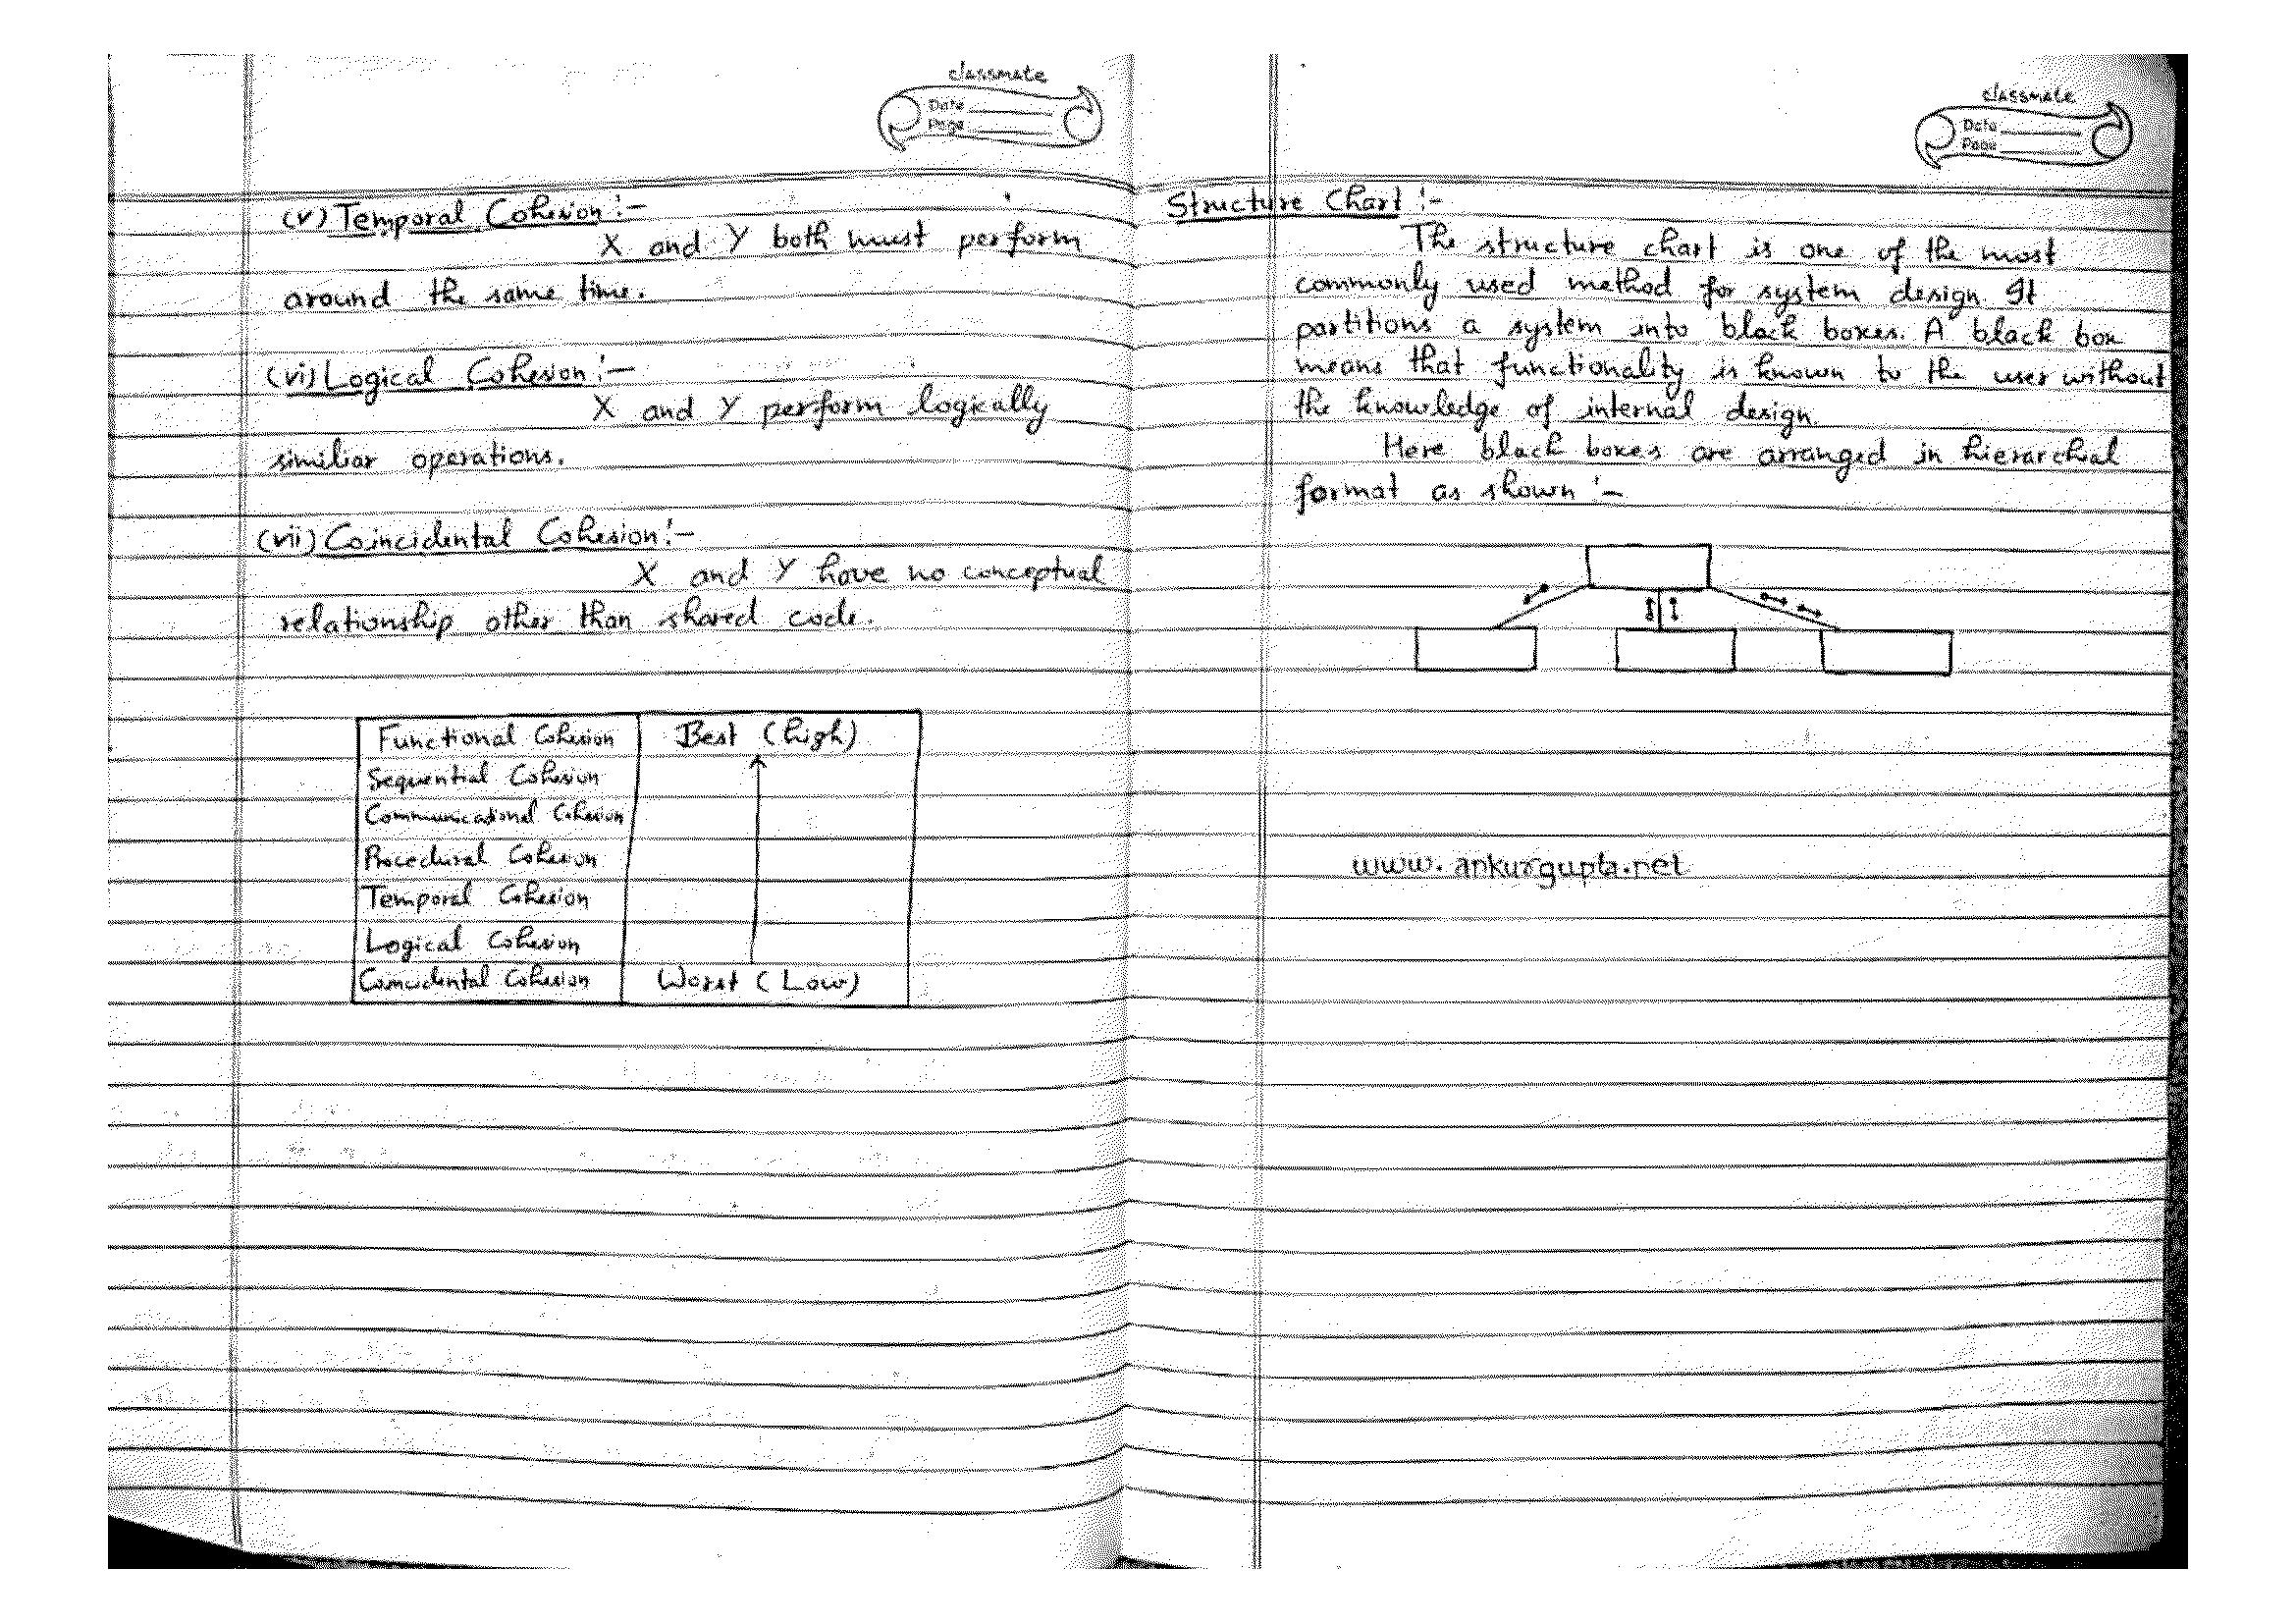 classmate
Date
Page
(v) Temporal Cohesion :-
X and Y both must perform
around the same time.
(vi) Logical Cohesion :-
X and Y perform logically
similiar operations.
(vii) Coincidental Cohesion :-
X and Y have no conceptual
relationship other than shared code.
Functional Cohesion Best (high)
Sequential Cohesion
Communicational Cohesion
Procedural Cohesion
Temporal Cohesion
Logical Cohesion
Coincidental Cohesion Worst (Low)
classmate
Date
Page
Structure Chart :-
The structure chart is one of the most
commonly used method for system design It
partitions a system into black boxes. A black box
means that functionality is known to the user without
the knowledge of internal design
Here black boxes are arranged in hierarchial
format as shown :-
www.ankurgupta.net